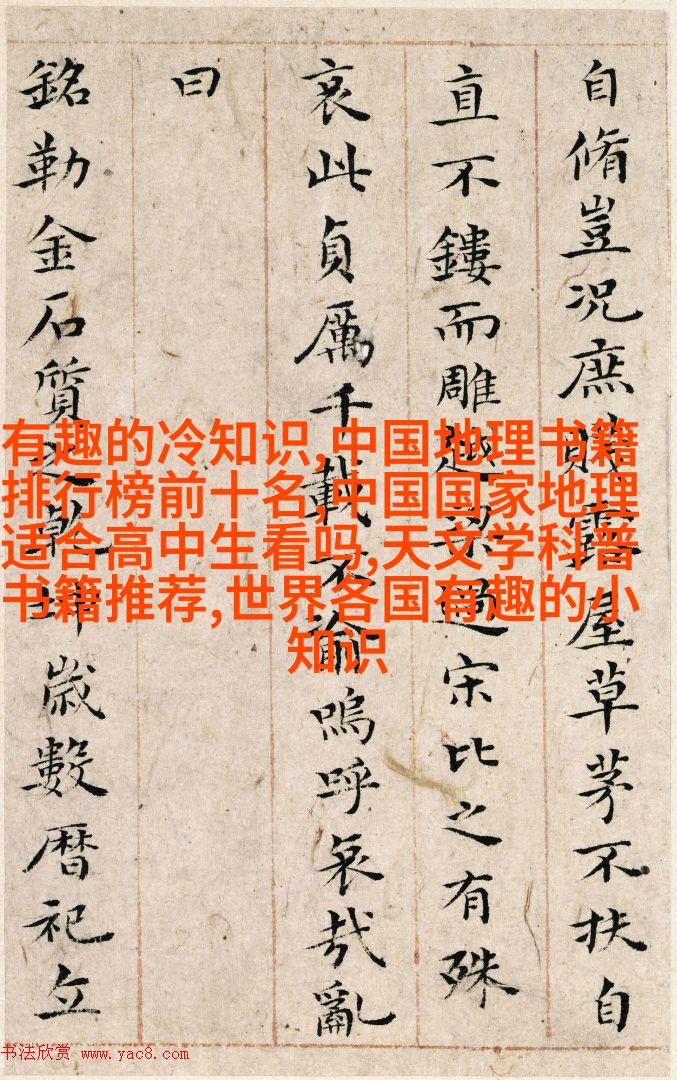 自脩豈況庶賤露屋草茅不扶自
直不鏤而雕越梁過宋比之有殊
哀此貞厲千載不渝嗚呼哀哉亂
曰
銘勒金石質之乾坤歲數暦祀立
有趣的冷知识,中国地理书籍
排行榜前十名,中国国家地理
适合高中生看吗,天文学科普
书籍推荐,世界各国有趣的小
知识
书法欣赏 www.yac8.com